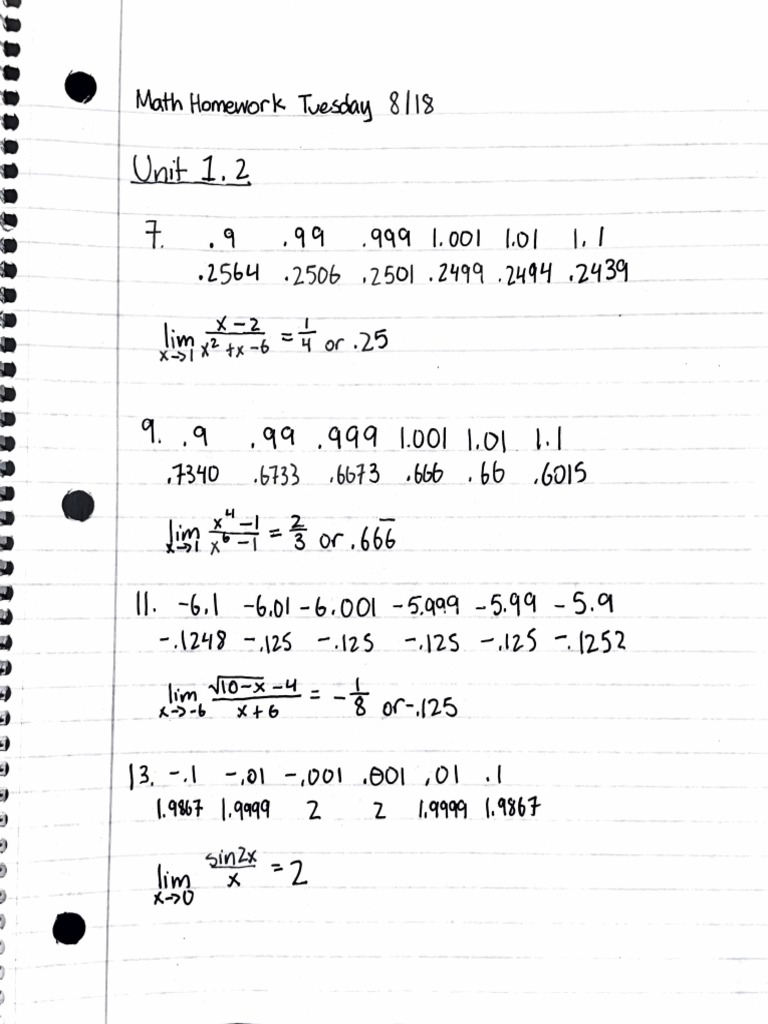 Math Homework Tuesday 8/18
Unit 1.2
7. .9 .99 .999 1.001 1.01 1.1
.2564 .2506 .2501 .2499 .2494 .2439
lim x→1 x-2/x²+x-6 = 1/4 or .25
9. .9 .99 .999 1.001 1.01 1.1
.7340 .6733 .6673 .666 .66 .6015
lim x→1 x⁴-1/x⁶-1 = 2/3 or .666̅
11. -6.1 -6.01 -6.001 -5.999 -5.99 -5.9
-.1248 -.125 -.125 -.125 -.125 -.1252
lim x→-6 √10-x -4/x+6 = -1/8 or -.125
13. -.1 -.01 -.001 .001 .01 .1
1.9867 1.9999 2 2 1.9999 1.9867
lim x→0 sin2x/x = 2